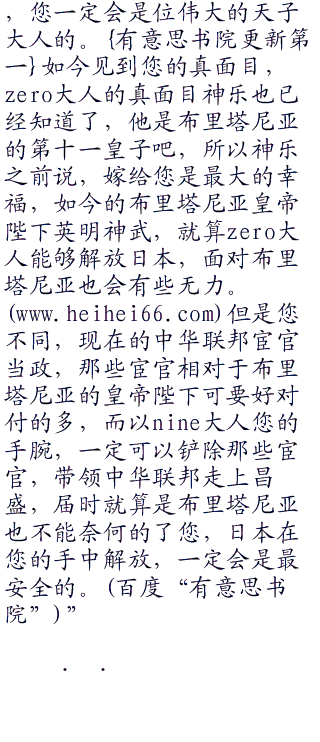 ，您一定会是位伟大的天子
大人的。{有意思书院更新第
一}如今见到您的真面目，
zero大人的真面目神乐也已
经知道了，他是布里塔尼亚
的第十一皇子吧，所以神乐
之前说，嫁给您是最大的幸
福，如今的布里塔尼亚皇帝
陛下英明神武，就算zero大
人能够解放日本，面对布里
塔尼亚也会有些无力。
(www.heihei66.com)但是您
不同，现在的中华联邦宦官
当政，那些宦官相对于布里
塔尼亚的皇帝陛下可要好对
付的多，而以nine大人您的
手腕，一定可以铲除那些宦
官，带领中华联邦走上昌
盛，届时就算是布里塔尼亚
也不能奈何的了您，日本在
您的手中解放，一定会是最
安全的。(百度“有意思书
院”)”
．．